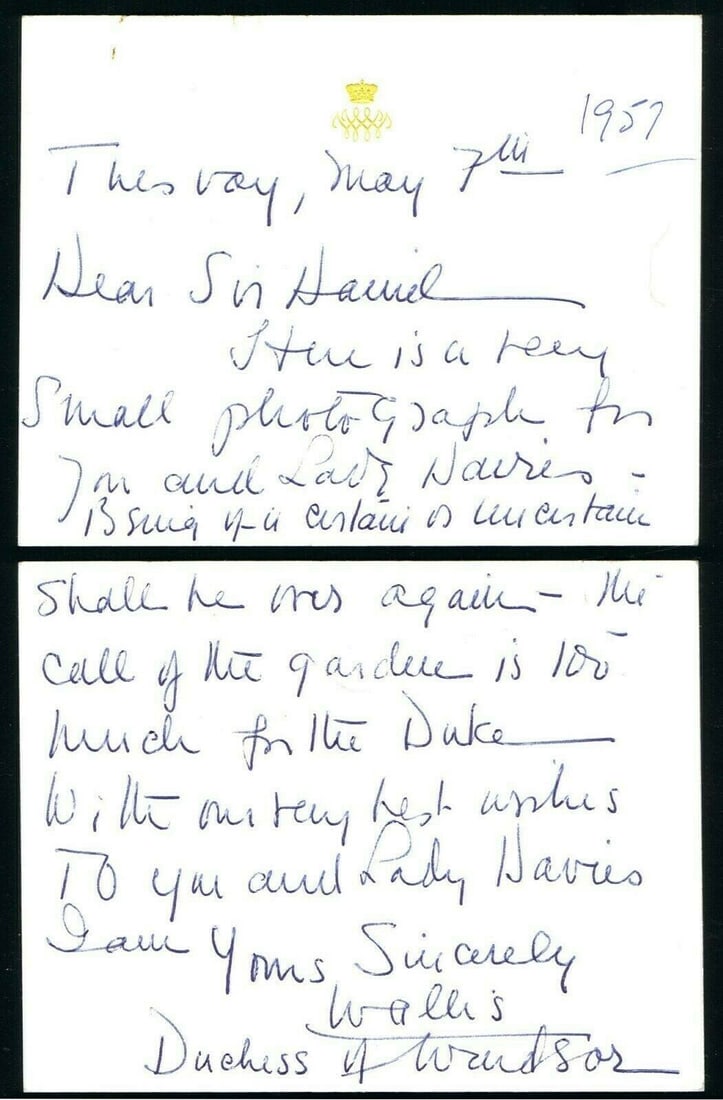 Tuesday, May 7th 1957
Dear Sir Daniel
Here is a very
Small photograph for
You and Lady Davies -
Being of a certain or uncertain
Shall be over again - the
call of the garden is too
much for the Duke
With our very best wishes
To you and Lady Davies
I am Yours Sincerely
Wallis
Duchess of Windsor